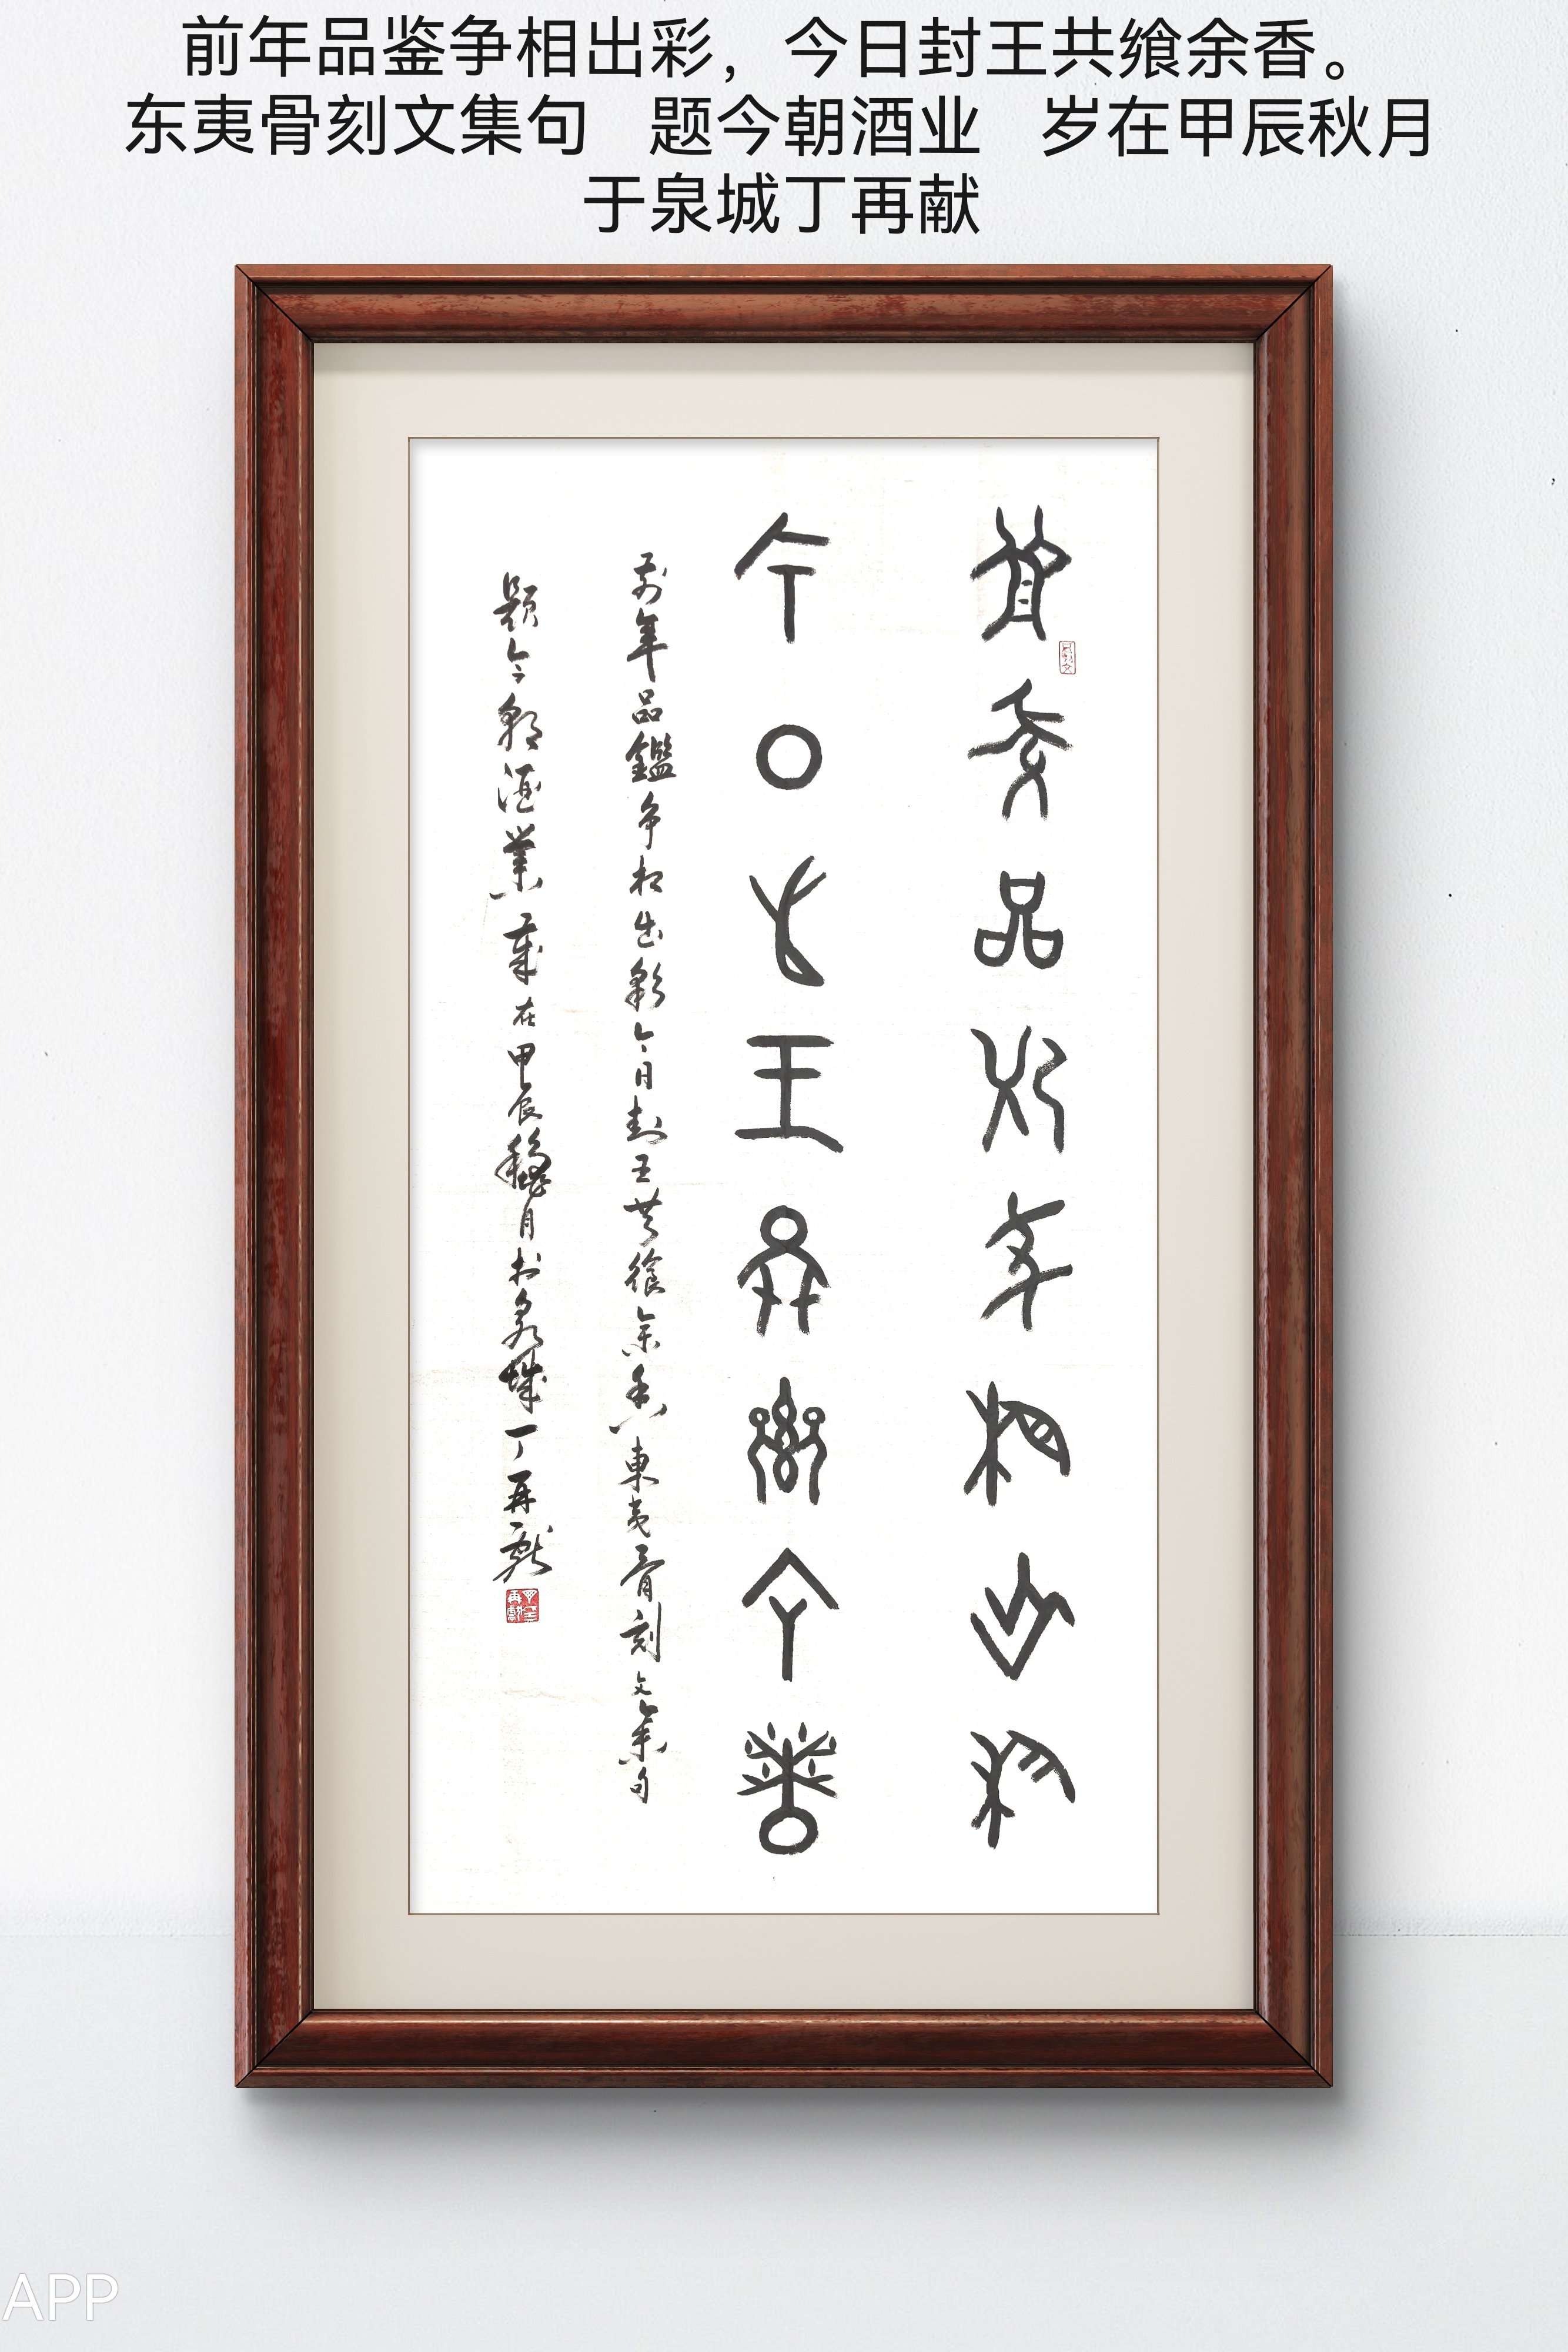 前年品鉴争相出彩，今日封王共飨余香。
东夷骨刻文集句 题今朝酒业 岁在甲辰秋月
于泉城丁再献
前年品鑑争相出彩
今日封王共飨余香
前年品鑑争相出彩今日封王共飨余香東夷骨刻文集句
题今朝酒業歲在甲辰穐月於泉城丁再獻
APP